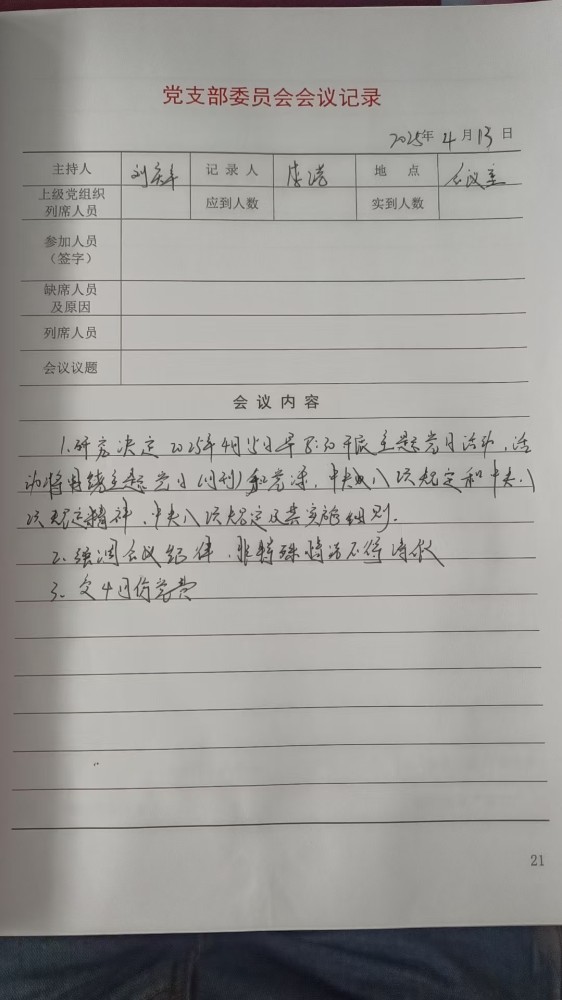 党支部委员会会议记录
2025年 4 月 13 日
主持人 刘 记录人 李 地点 会议室
上级党组织列席人员 应到人数 实到人数
参加人员（签字）
缺席人员及原因
列席人员
会议议题
会议内容
1.研究决定2025年4月15日早8:30开展主题党日活动，活
动将围绕主题党日（月刊）和党课，中央八项规定和中央八
项规定精神，中央八项规定及其实施细则。
2.强调会议纪律，非特殊情况不得请假
3.交4月份党费
21